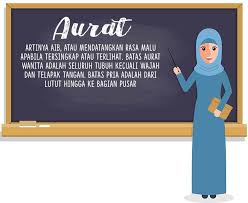 Aurat
ARTINYA AIB, ATAU MENDATANGKAN RASA MALU
APABILA TERSINGKAP ATAU TERLIHAT. BATAS AURAT
WANITA ADALAH SELURUH TUBUH KECUALI WAJAH
DAN TELAPAK TANGAN. BATAS PRIA ADALAH DARI
LUTUT HINGGA KE BAGIAN PUSAR